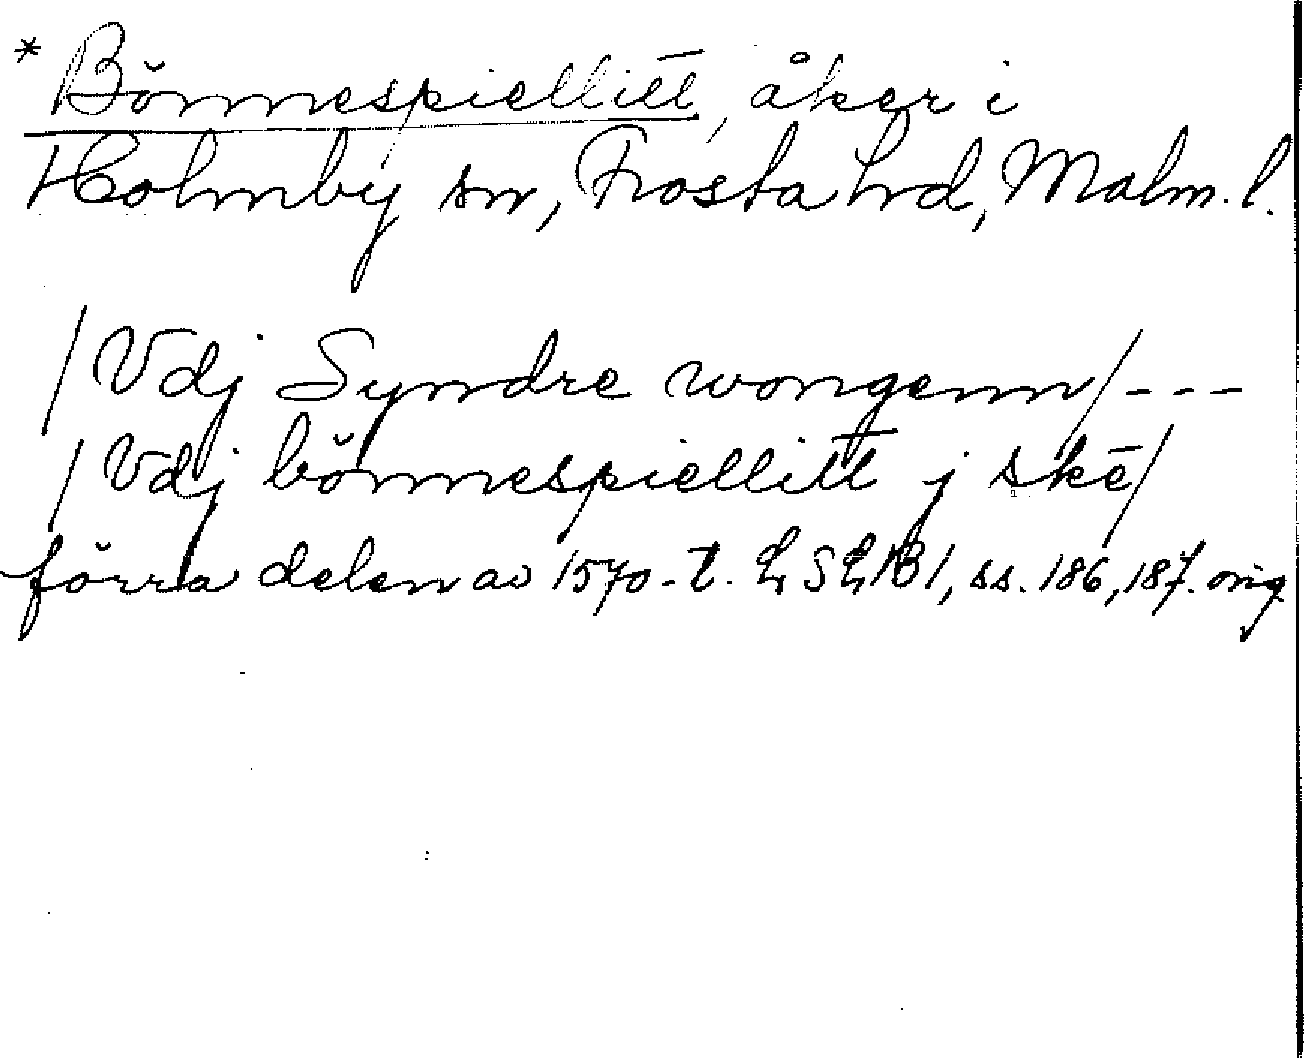 * Bönnespiellitt, åker i
Holmby sn, Frosta hrd, Malm. l.
/Vdj Syndre wongenn/---
/Vdj bönnespiellitt j skē/
förra delen av 1570-t. LSLB1, ss. 186, 187. orig